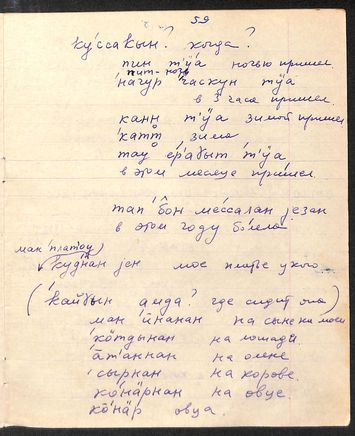 59
ку́ссаҟын? когда?
пин т'ӱа ночью пришел.
пит-ночь
на́гур часкун тӱа
в 3 часа пришел
канн т'ӱа зимой пришел
катт зима
тау ӭра́ҟыт т'ӱа
в этом месяце пришел.
тап'бон ме́ссалан jезан
в этом году было
ман платоу
кудна́н jен мое платье у кого
(ка́йҟын амда? где сидит она)
ман на
ко́тдынан на лошади.
а̄т'аннан на олене
сырнан на корове.
ко́нӓрнан на овце.
ко́нӓр овца.